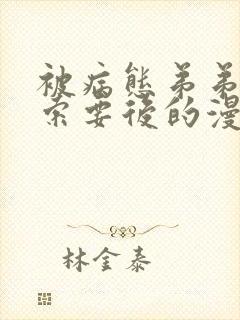 被病態弟弟
索要後的漫
林金泰